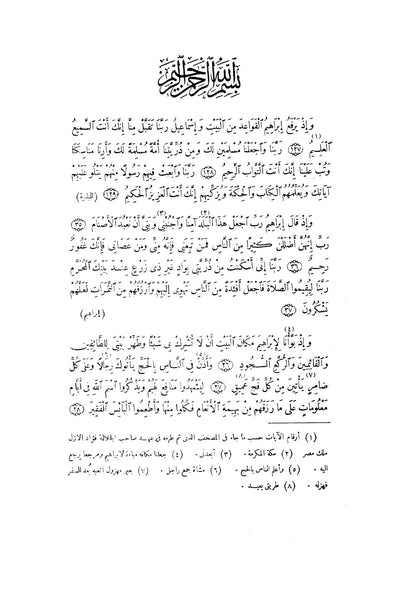 بسم الله الرحمن الرحيم
وَإِذْ يَرْفَعُ إِبْرَاهِيمُ الْقَوَاعِدَ مِنَ الْبَيْتِ وَإِسْمَاعِيلُ رَبَّنَا تَقَبَّلْ مِنَّا إِنَّكَ أَنْتَ السَّمِيعُ
الْعَلِيمُ (١) ١٢٧ رَبَّنَا وَاجْعَلْنَا مُسْلِمَيْنِ لَكَ وَمِنْ ذُرِّيَّتِنَا أُمَّةً مُسْلِمَةً لَكَ وَأَرِنَا مَنَاسِكَنَا
وَتُبْ عَلَيْنَا إِنَّكَ أَنْتَ التَّوَّابُ الرَّحِيمُ ١٢٨ رَبَّنَا وَابْعَثْ فِيهِمْ رَسُولًا مِنْهُمْ يَتْلُو عَلَيْهِمْ
آيَاتِكَ وَيُعَلِّمُهُمُ الْكِتَابَ وَالْحِكْمَةَ وَيُزَكِّيهِمْ إِنَّكَ أَنْتَ الْعَزِيزُ الْحَكِيمُ ١٢٩ (البقرة)
وَإِذْ قَالَ إِبْرَاهِيمُ رَبِّ اجْعَلْ هَذَا الْبَلَدَ (٢) آمِنًا وَاجْنُبْنِي (٣) وَبَنِيَّ أَنْ نَعْبُدَ الْأَصْنَامَ ٣٥
رَبِّ إِنَّهُنَّ أَضْلَلْنَ كَثِيرًا مِنَ النَّاسِ فَمَنْ تَبِعَنِي فَإِنَّهُ مِنِّي وَمَنْ عَصَانِي فَإِنَّكَ غَفُورٌ
رَحِيمٌ ٣٦ رَبَّنَا إِنِّي أَسْكَنْتُ مِنْ ذُرِّيَّتِي بِوَادٍ غَيْرِ ذِي زَرْعٍ عِنْدَ بَيْتِكَ الْمُحَرَّمِ
رَبَّنَا لِيُقِيمُوا الصَّلَاةَ فَاجْعَلْ أَفْئِدَةً مِنَ النَّاسِ تَهْوِي إِلَيْهِمْ وَارْزُقْهُمْ مِنَ الثَّمَرَاتِ لَعَلَّهُمْ
يَشْكُرُونَ ٣٧ (إبراهيم)
وَإِذْ بَوَّأْنَا (٤) لِإِبْرَاهِيمَ مَكَانَ الْبَيْتِ أَنْ لَا تُشْرِكْ بِي شَيْئًا وَطَهِّرْ بَيْتِيَ لِلطَّائِفِينَ
وَالْقَائِمِينَ وَالرُّكَّعِ السُّجُودِ ٢٦ وَأَذِّنْ فِي النَّاسِ بِالْحَجِّ يَأْتُوكَ رِجَالًا وَعَلَى كُلِّ
ضَامِرٍ (٧) يَأْتِينَ مِنْ كُلِّ فَجٍّ عَمِيقٍ (٨) ٢٧ لِيَشْهَدُوا مَنَافِعَ لَهُمْ وَيَذْكُرُوا اسْمَ اللَّهِ فِي أَيَّامٍ
مَعْلُومَاتٍ عَلَى مَا رَزَقَهُمْ مِنْ بَهِيمَةِ الْأَنْعَامِ فَكُلُوا مِنْهَا وَأَطْعِمُوا الْبَائِسَ الْفَقِيرَ ٢٨
(١) أرقام الآيات حسب ما جاء في المصحف الذي تم طبعه في عهد صاحب الجلالة فؤاد الأول
ملك مصر (٢) مكة المكرمة . (٣) أبعدني . (٤) جعلنا مكانه مباءة لإبراهيم ومرجعا يرجع
اليه . (٥) وأعلم الناس بالحج . (٦) مشاة جمع راجل . (٧) بعير مهزول أتعبه بُعد السفر
فهزله . (٨) طريق بعيد .